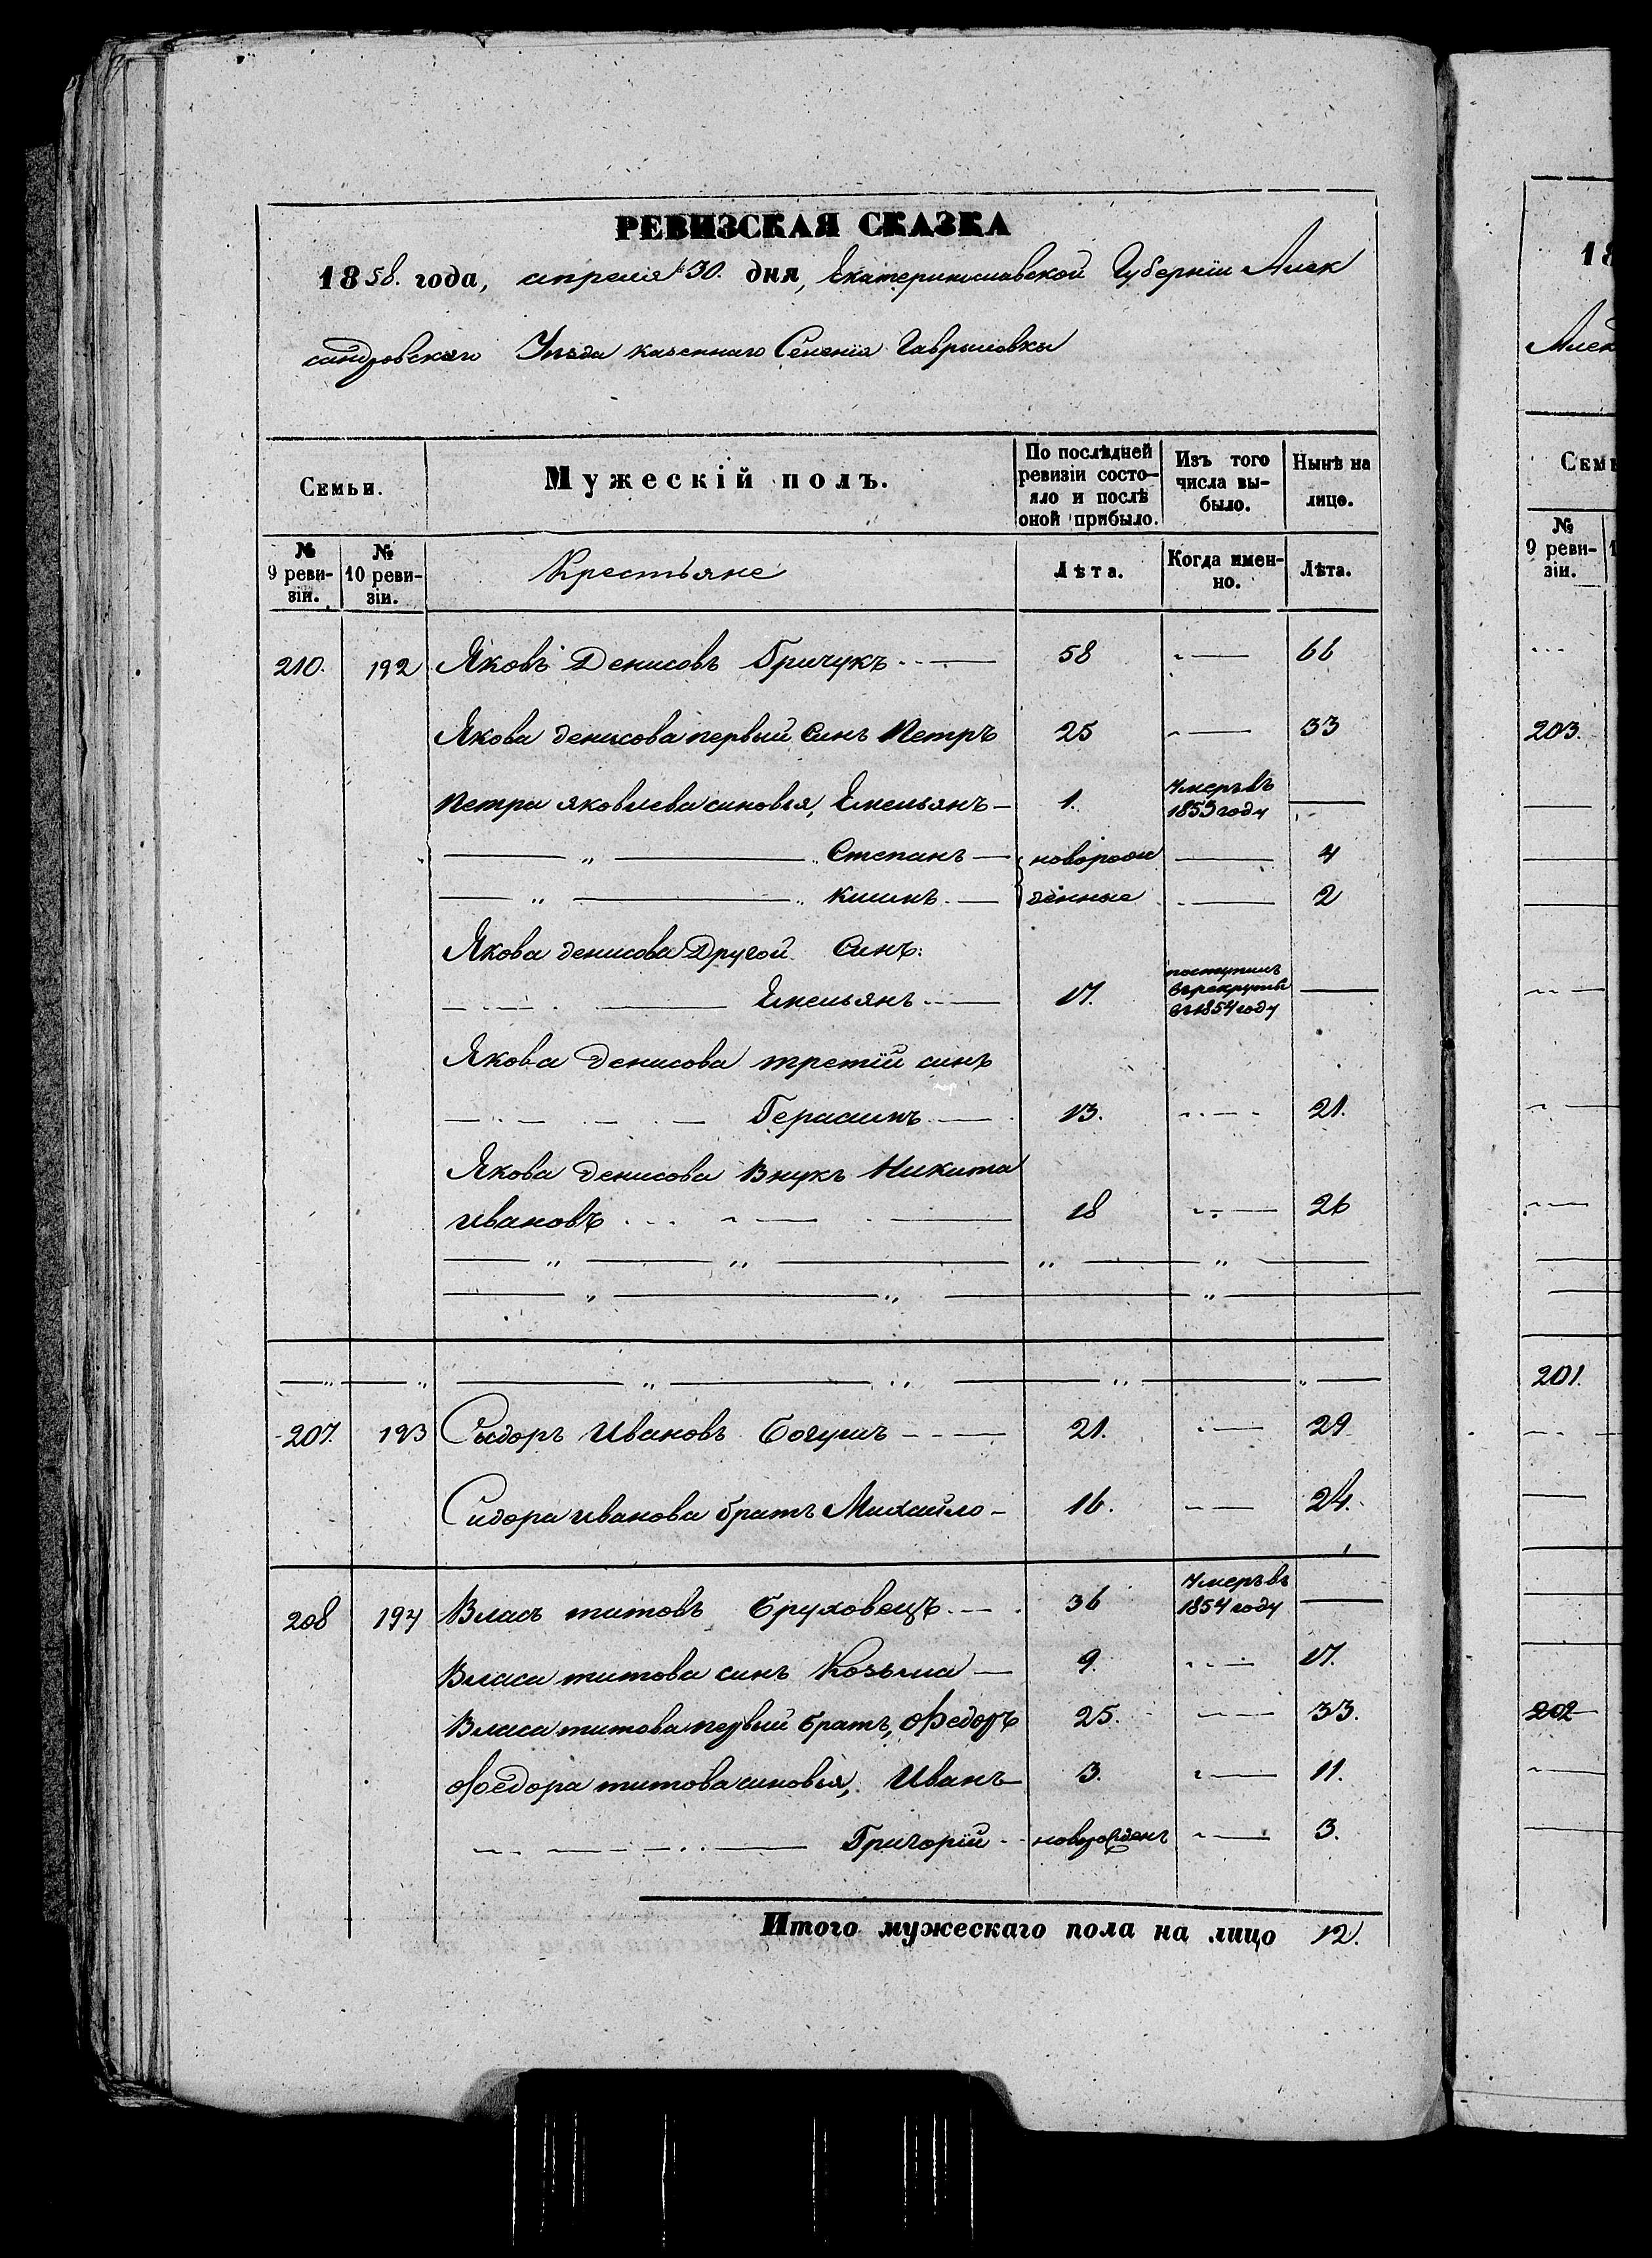 РЕВИЗСКАЯ СКАЗКА
1858. года, апреля 30. дня, Екатеринославской Губерніи Алек
сандровскаго Уезда казеннаго Селенія Гавриловки
Семьи.
Мужескій полъ.
По послѣдней ревизіи состо-яло и послѣ оной прибыло.
Изъ того числа вы-было.
Нынѣ на лицо.
№ 9 реви-зіи.
№ 10 реви-зіи.
Крестьяне
Лѣта.
Когда имен-но.
Лѣта.
210. 192 Яковъ Денисовъ Гричукъ 58 66
Якова денисова первый синъ Петръ 25 33
Петра яковлева синовья, Емельянъ 1. Умеръ въ 1853 году
Степанъ новорож 4
Климъ денные 2
Якова денисова Другой Синъ:
Емельянъ 17. поступилъ въ рекруты въ 1854 году
Якова денисова третій синъ
Герасимъ 13. 21.
Якова денисова Внукъ Никита
Ивановъ 18 26
207. 193 Сидоръ Ивановъ Богушъ 21. 29
Сидора иванова братъ Михайло 16. 24.
208 194 Власъ титовъ Бруховецъ 36 Умеръ въ 1854 году
Власа титова синъ Козьма 9. 17.
Власа титова первый братъ, Федоръ 25. 33.
Федора титова синовья, Иванъ 3. 11.
Григорій новорожденъ 3.
Итого мужескаго пола на лицо 12.
18
Алек
Семь
№ 9 реви-зіи.
203.
201.
202